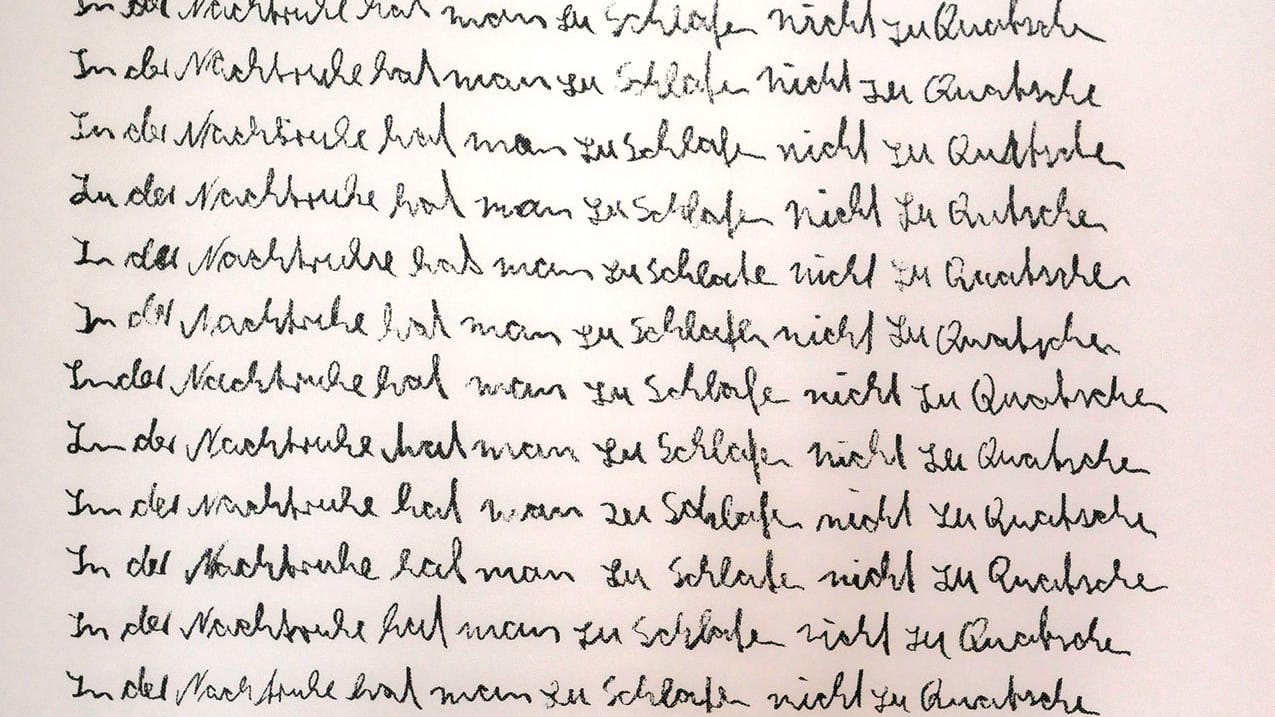 In der Nachtruhe hat man zu Schlafen nicht zu Quatsche
In der Nachtruhe hat man zu Schlafen nicht zu Quatsche
In der Nachtruhe hat man zu Schlafen nicht zu Quatschen
In der Nachtruhe hat man zu Schlafen nicht zu Qutschen
In der Nachtruhe hat man zu Schlafe nicht zu Quatschen
In der Nachtruhe hat man zu Schlafen nicht zu Quatschen
In der Nachtruhe hat man zu Schlafe nicht zu Quatschen
In der Nachtruhe hat man zu Schlafen nicht zu Quatschen
In der Nachtruhe hat man zu Schlafen nicht zu Quatschen
In der Nachtruhe hat man zu Schlafen nicht zu Quatschen
In der Nachtruhe hat man zu Schlafen nicht zu Quatschen
In der Nachtruhe hat man zu Schlafen nicht zu Quatsche